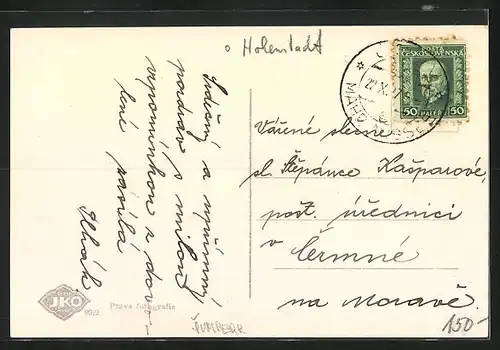 Hohenstadt
Srdečný a upřímný
pozdrav s milou
vzpomínkou z dovo-
lené zasílá
POŠTA
ČESKOSLOVENSKA
50 HALÉŘŮ 50
Vážené slečně
sl. Štěpánce Kašparové,
pošt. úřednici
v Čermné
na Moravě.
JKO
Pravá fotografie
ŠUMPERK
150-